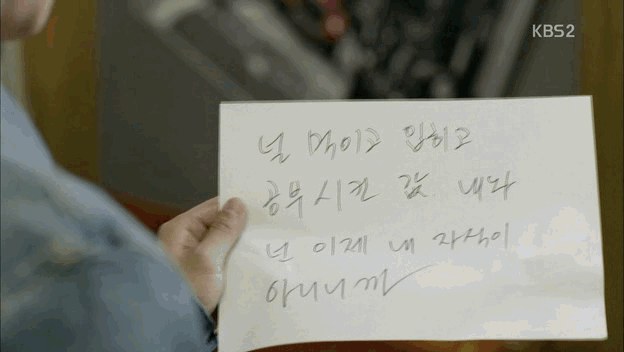 KBS2
널 먹이고 입히고
공부시킨 값 내놔
넌 이제 내 자식이
아니니까